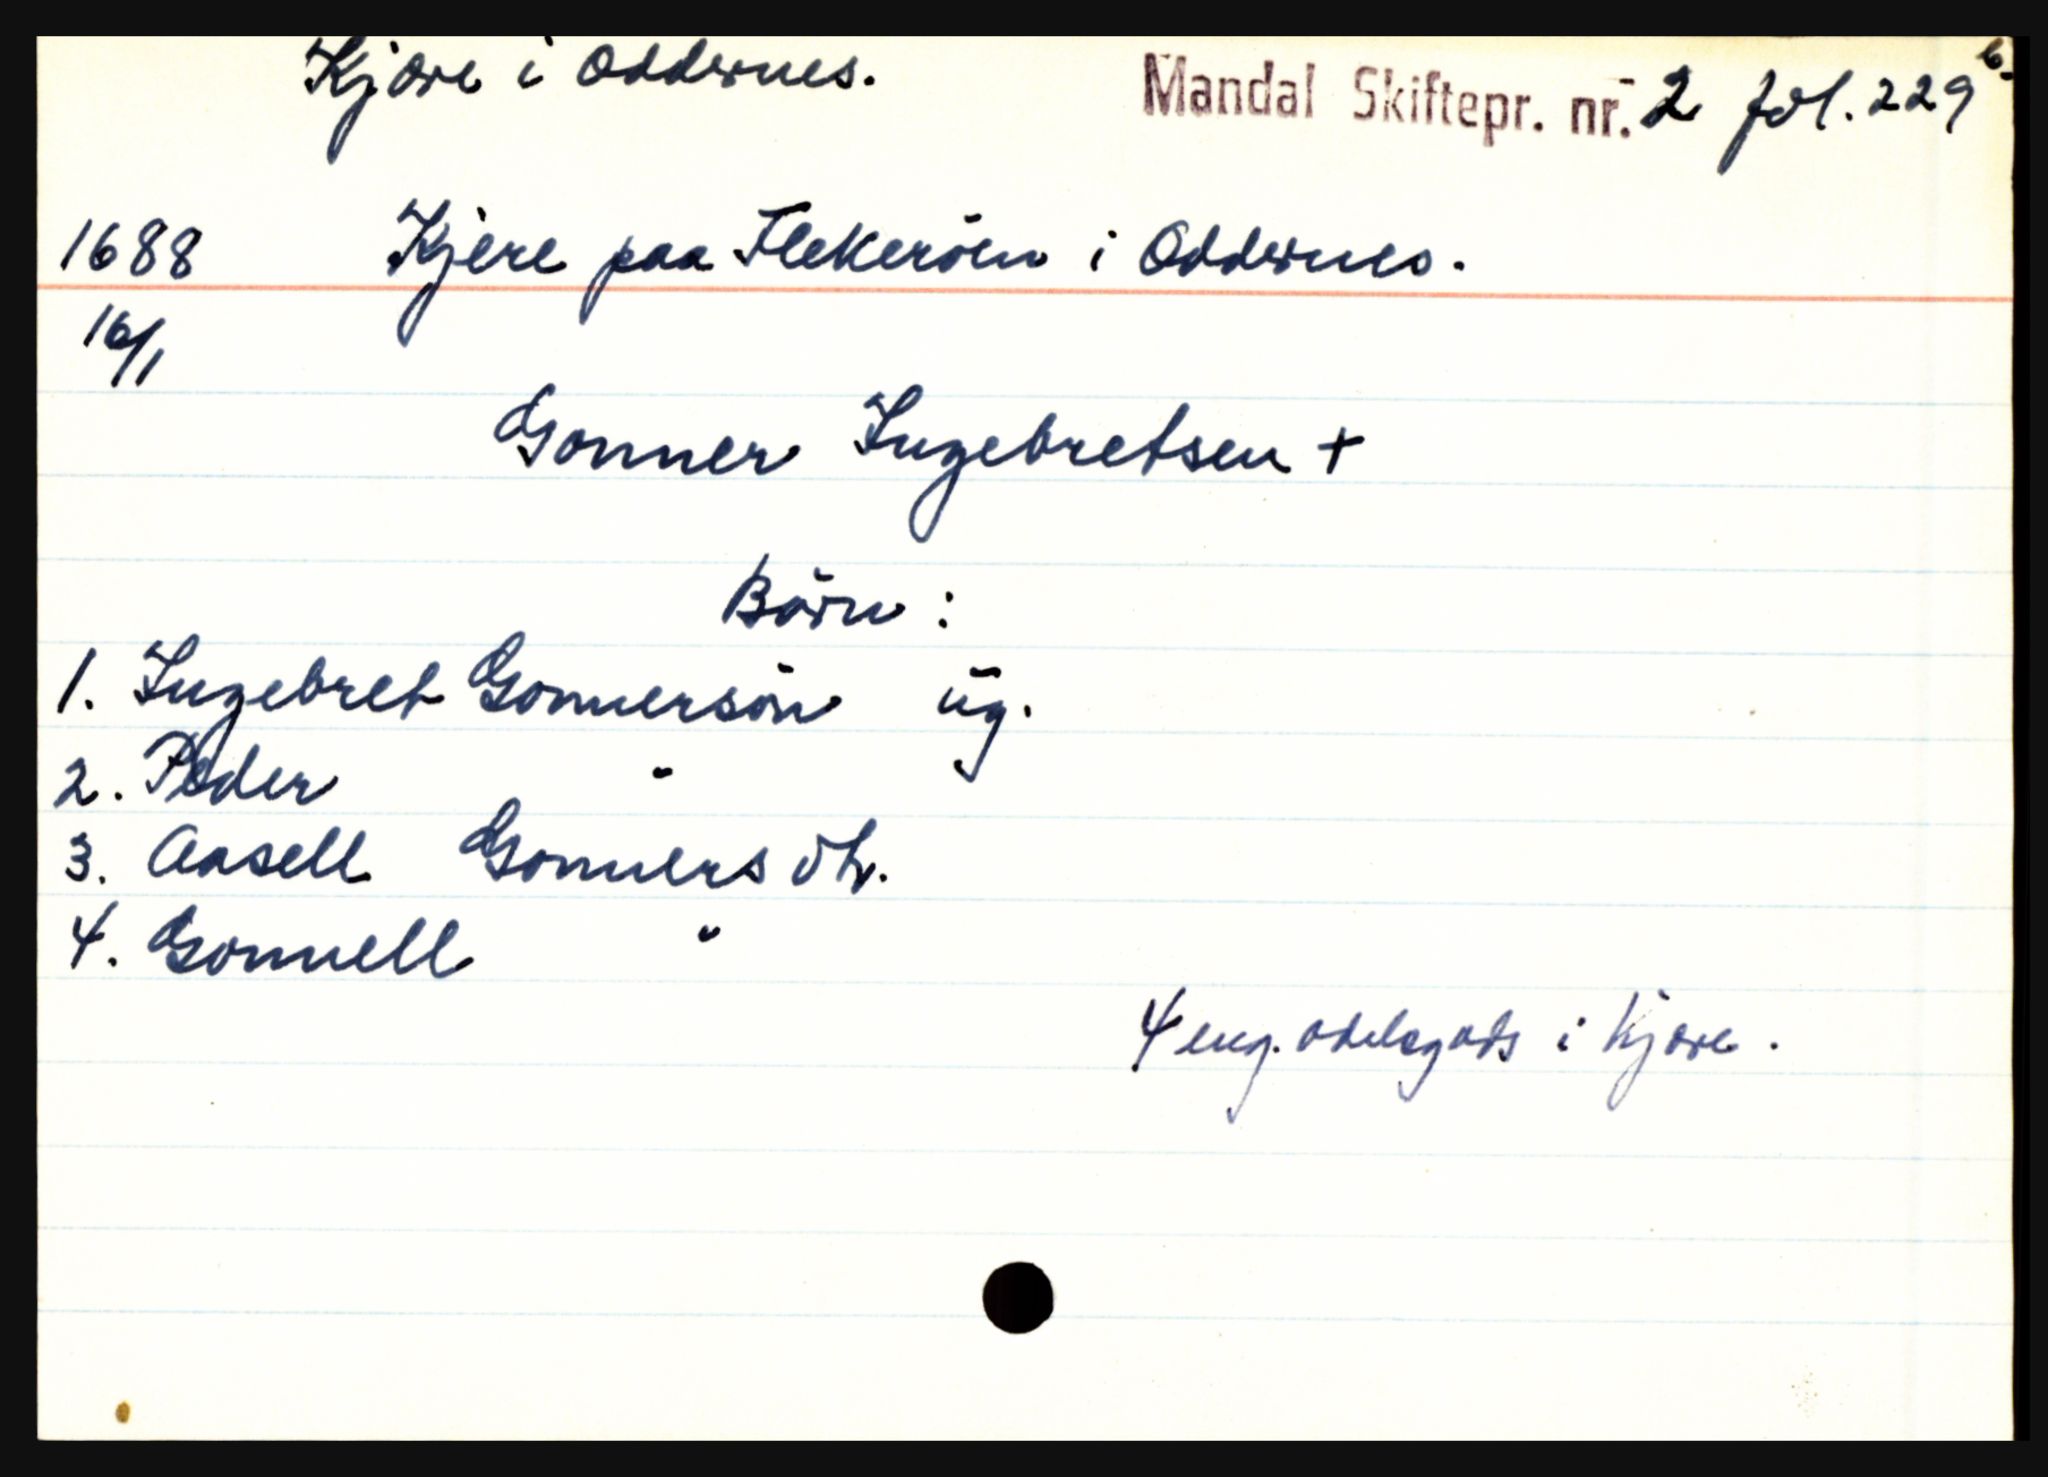 Kjære i Oddernes.
Mandal Skiftepr. nr. 2 fol. 229 b.
1688 Kjere paa Flekeröen i Oddernes.
16/1
Gonner Ingebretsen +
Börn :
1. Ingebret Gonnersön ug.
2. Peder "
3. Aasell Gonners dtr.
4. Gonnell "
4 eng. odelsgods i Kjære.